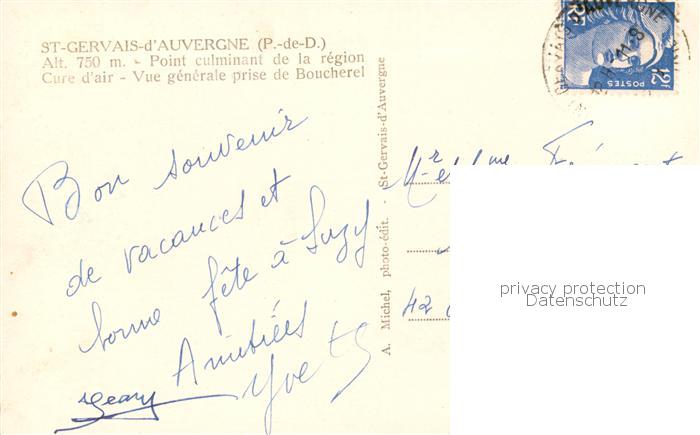 ST-GERVAIS-d'AUVERGNE (P.-de-D.)
Alt. 750 m. - Point culminant de la région
Cure d'air - Vue générale prise de Boucherel
Bon souvenir
de vacances et
bonne fête à Suzy
Amitiés
Yvette
A. Michel, photo-édit. - St-Gervais-d'Auvergne
Mr et Mme
42
12F
POSTES
privacy protection
Datenschutz